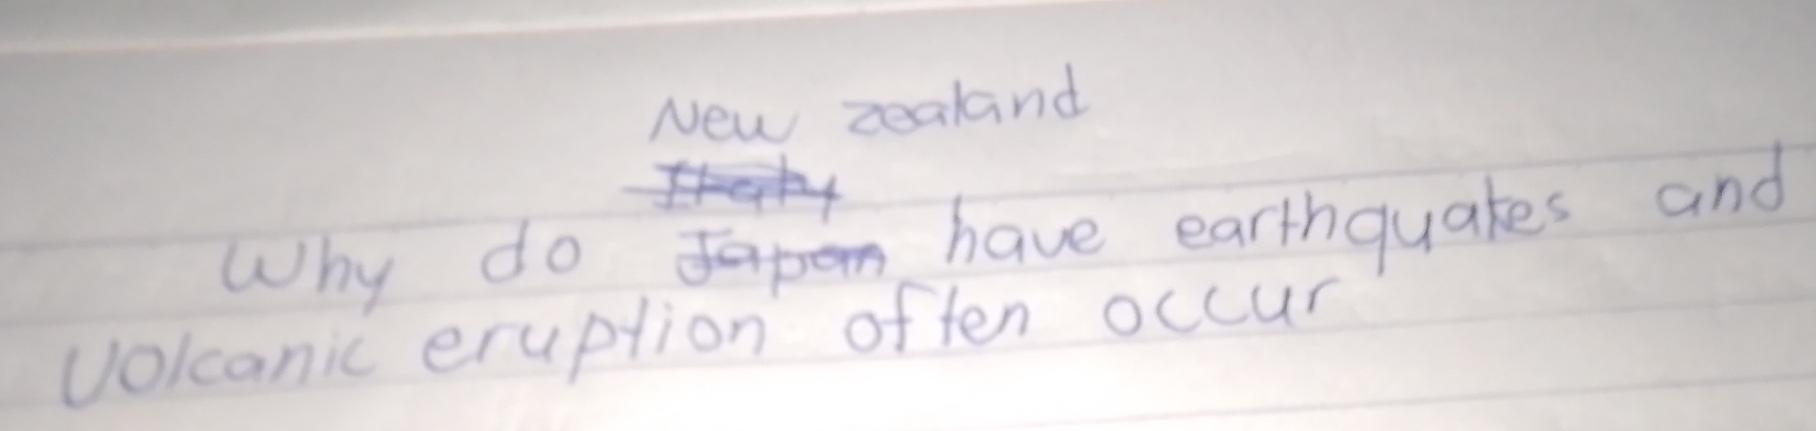 New zealand
Italy
Why do Japan have earthquakes and
Volcanic eruption often occur